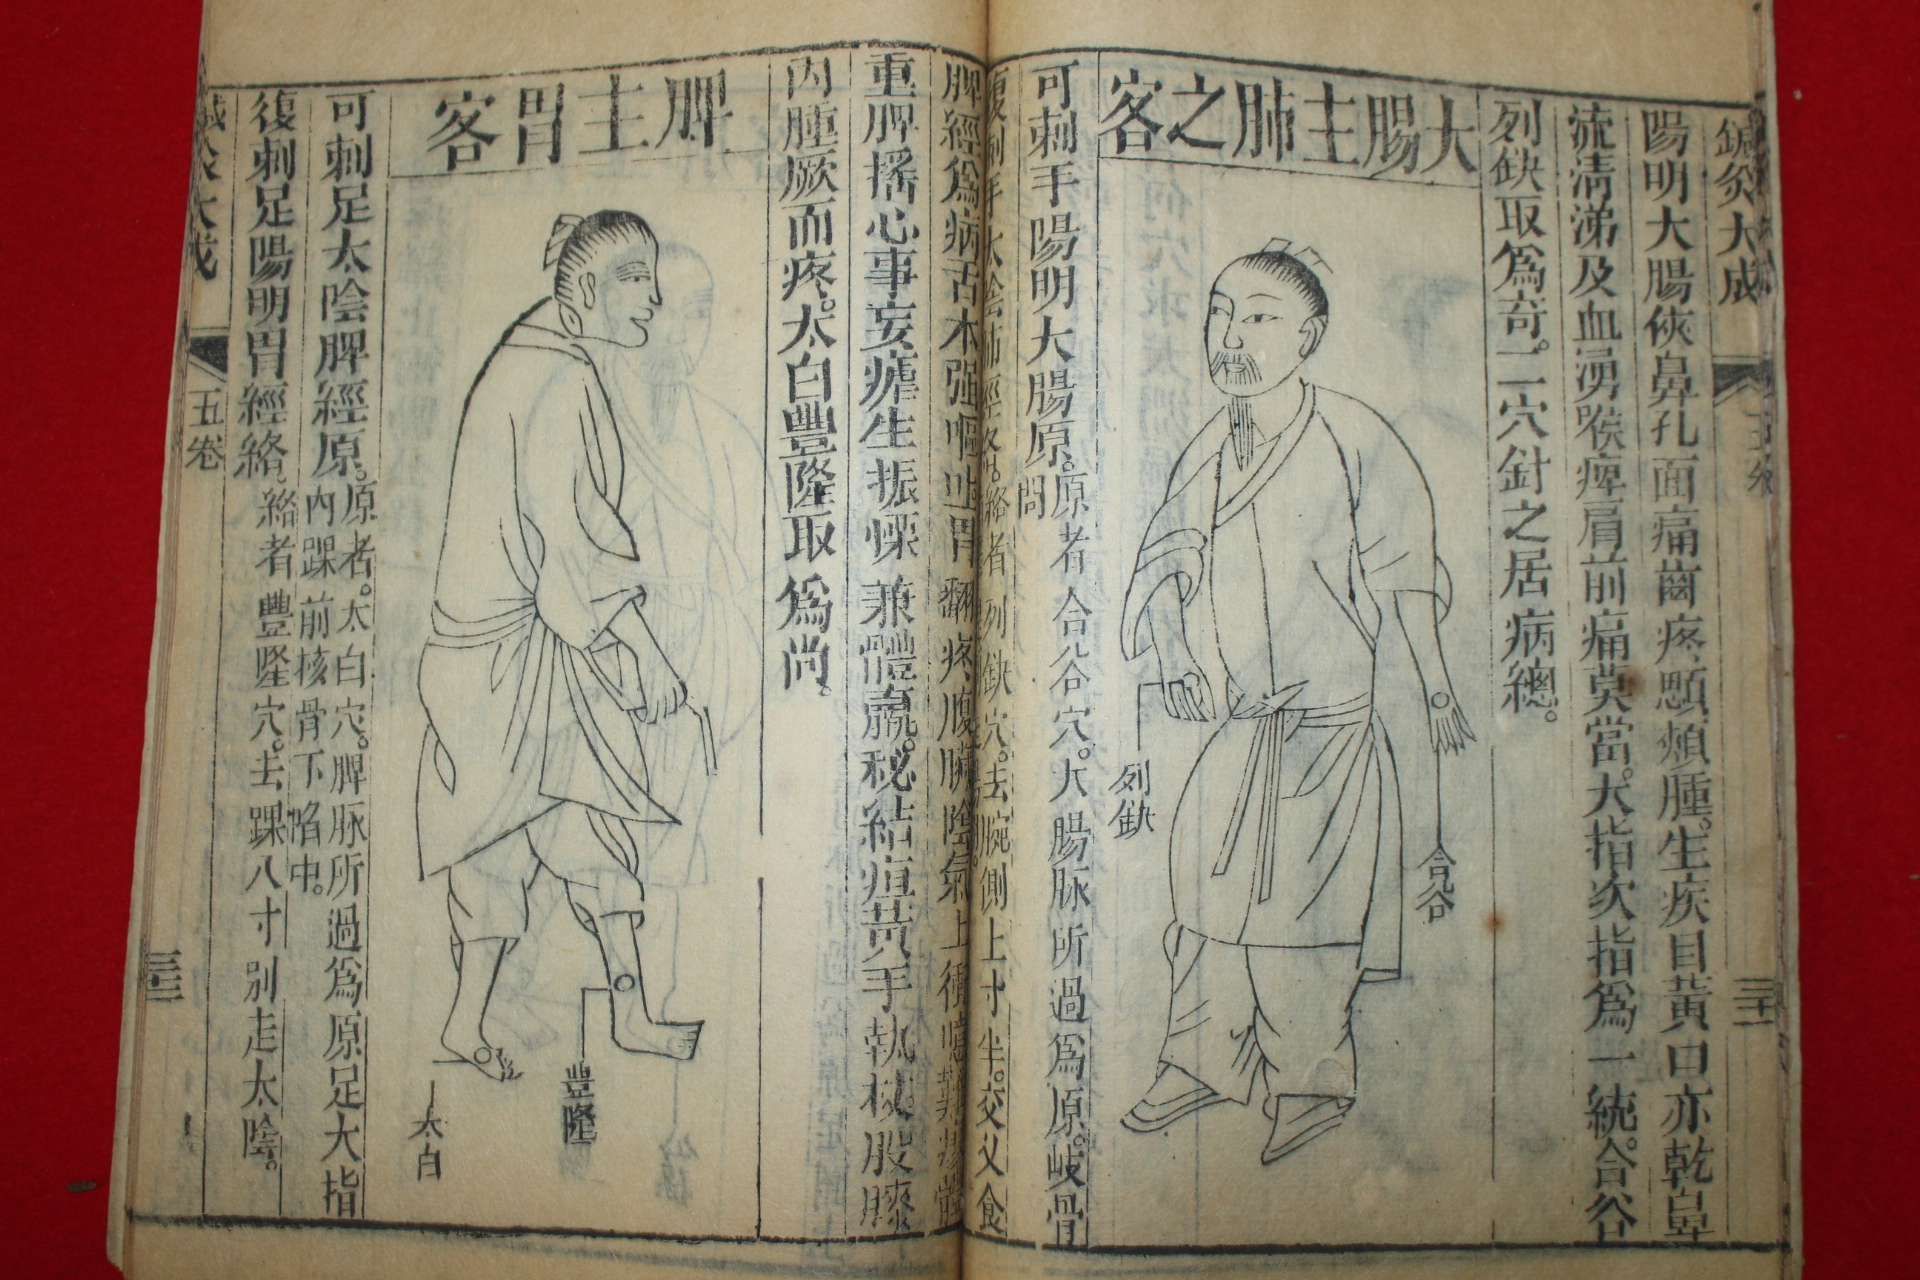 鍼灸大成
五卷
三十一
陽明大腸俠鼻孔面痛齒疼顋頰腫。生疾目黃口亦乾鼻
流清涕及血湧喉痺肩前痛莫當。大指次指爲一統。合谷
列缺取爲奇。二穴針之居病總。
大腸主肺之客
合谷
列缺
可刺手陽明大腸原。原者合谷穴。大腸脉所過爲原。岐骨
間
復刺手太陰肺經絡。絡者列缺穴。去腕側上寸半。交父食
脾經爲病舌本强嘔吐胃翻疼腹臟陰氣上衝噫難瘳體
重脾搖心事妄瘧生振慄兼體羸。秘結疸黃手執杖股膝
內腫厥而疼。太白豐隆取爲尚。
脾主胃客
豐隆
太白
可刺足太陰脾經原。原者。太白穴。脾脉所過爲原足大指
內踝前核骨下陷中。
復刺足陽明胃經絡。絡者豐隆穴。去踝八寸別走太陰。
鍼灸大成
五卷
三十二